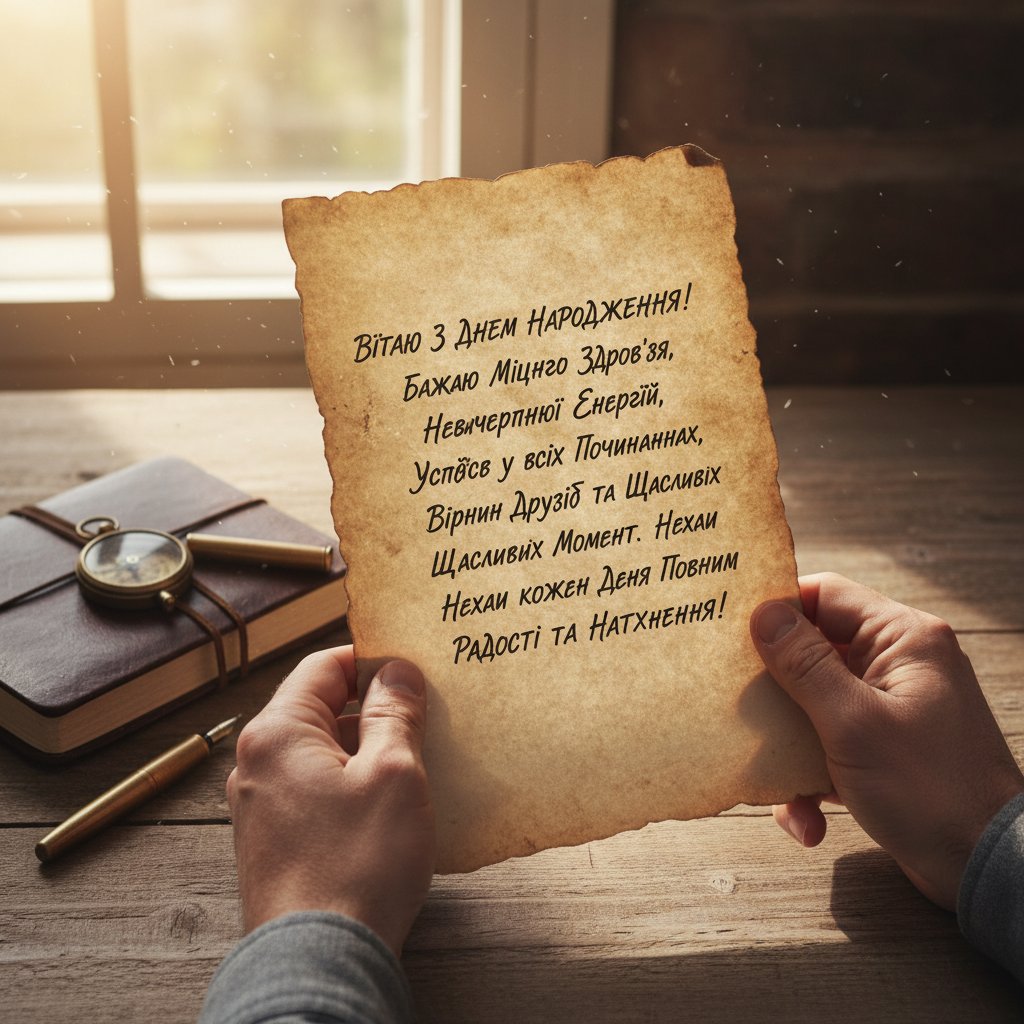 Вїтаю З Днем Народження!
Бажаю Міцнго Здров'зя,
Невичерпнюї Енергїй,
у всіх Починаннах,
Вірнин Друзіб та Щасливіх
Щасливйх Момент. Нехаи
Нехаи кожен Деня Повним
Радості та Натхнення!